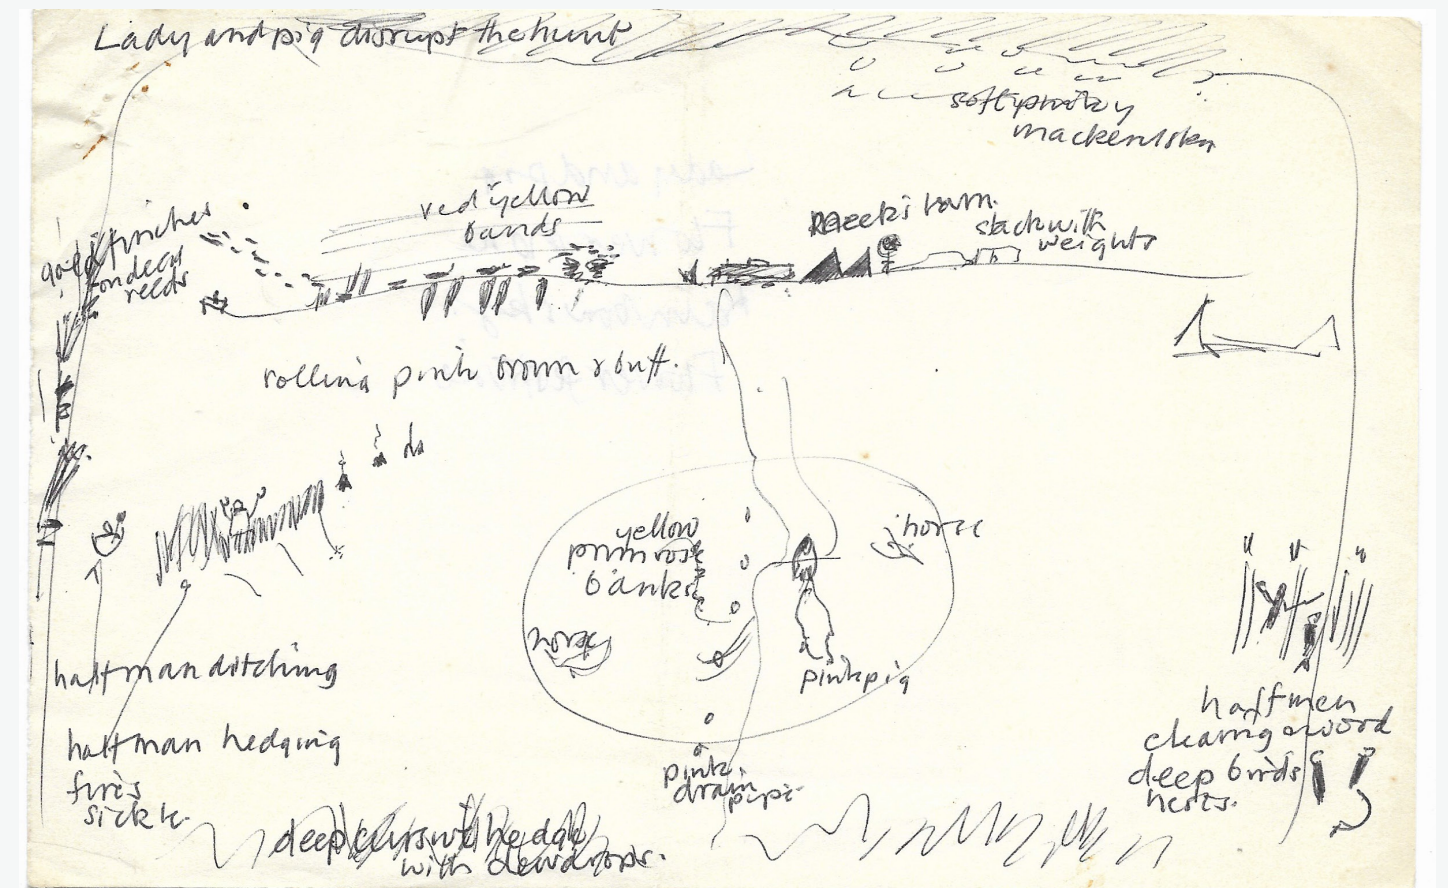 Lady and pig disrupt the hunt
soft
mackerel sky
red yellow
bands
goldfinches
on deck
reeds
barn.
stack with
weights
rolling pink brown & buff.
yellow
primrose
banks
horse
horse
pink pig
pink
drain
pipe
half man ditching
half man hedging
fires
sickle.
half men
clearing wood
deep birds
nests.
deep hedge
with dewdrops.